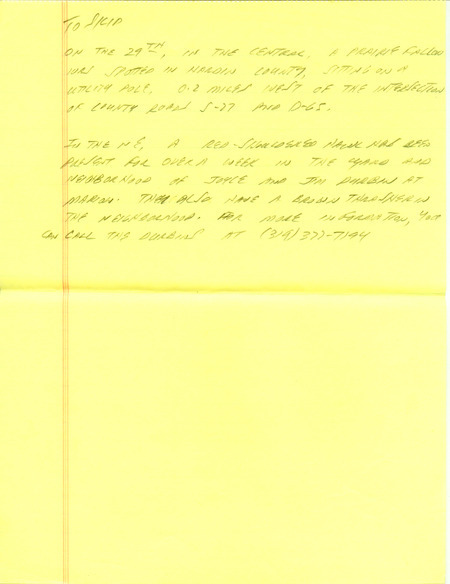 TO SKIP
ON THE 29TH, IN THE CENTRAL, A PRAIRIE FALCON
WAS SPOTED IN HARDIN COUNTY, SITTING ON A
UTILITY POLE, 0.2 MILES WEST OF THE INTERSECTION
OF COUNTY ROADS S-27 AND D-65.
IN THE NE, A RED-SHOULDERED HAWK HAS BEEN
PRESENT FOR OVER A WEEK IN THE YARD AND
NEIGHBORHOOD OF JOYLE AND JIM DURBIN AT
MARION. THEY ALSO HAVE A BROWN THRASHER IN
THE NEIGHBORHOOD. FOR MORE INFORMATION, YOU
CAN CALL THE DURBINS AT (319) 377-7194